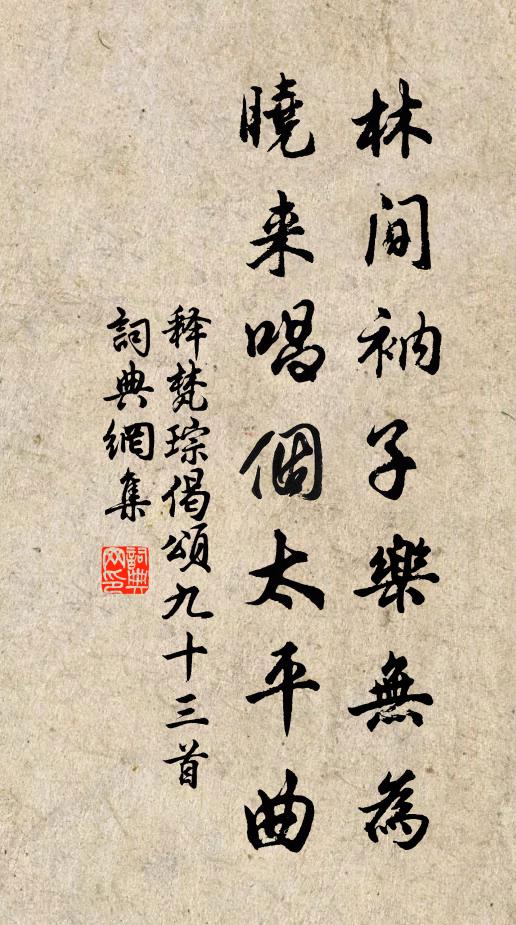 林間衲子樂無為
曉来唱個太平曲
释梵琮偈頌九十三首
詞典網集
詞典網印